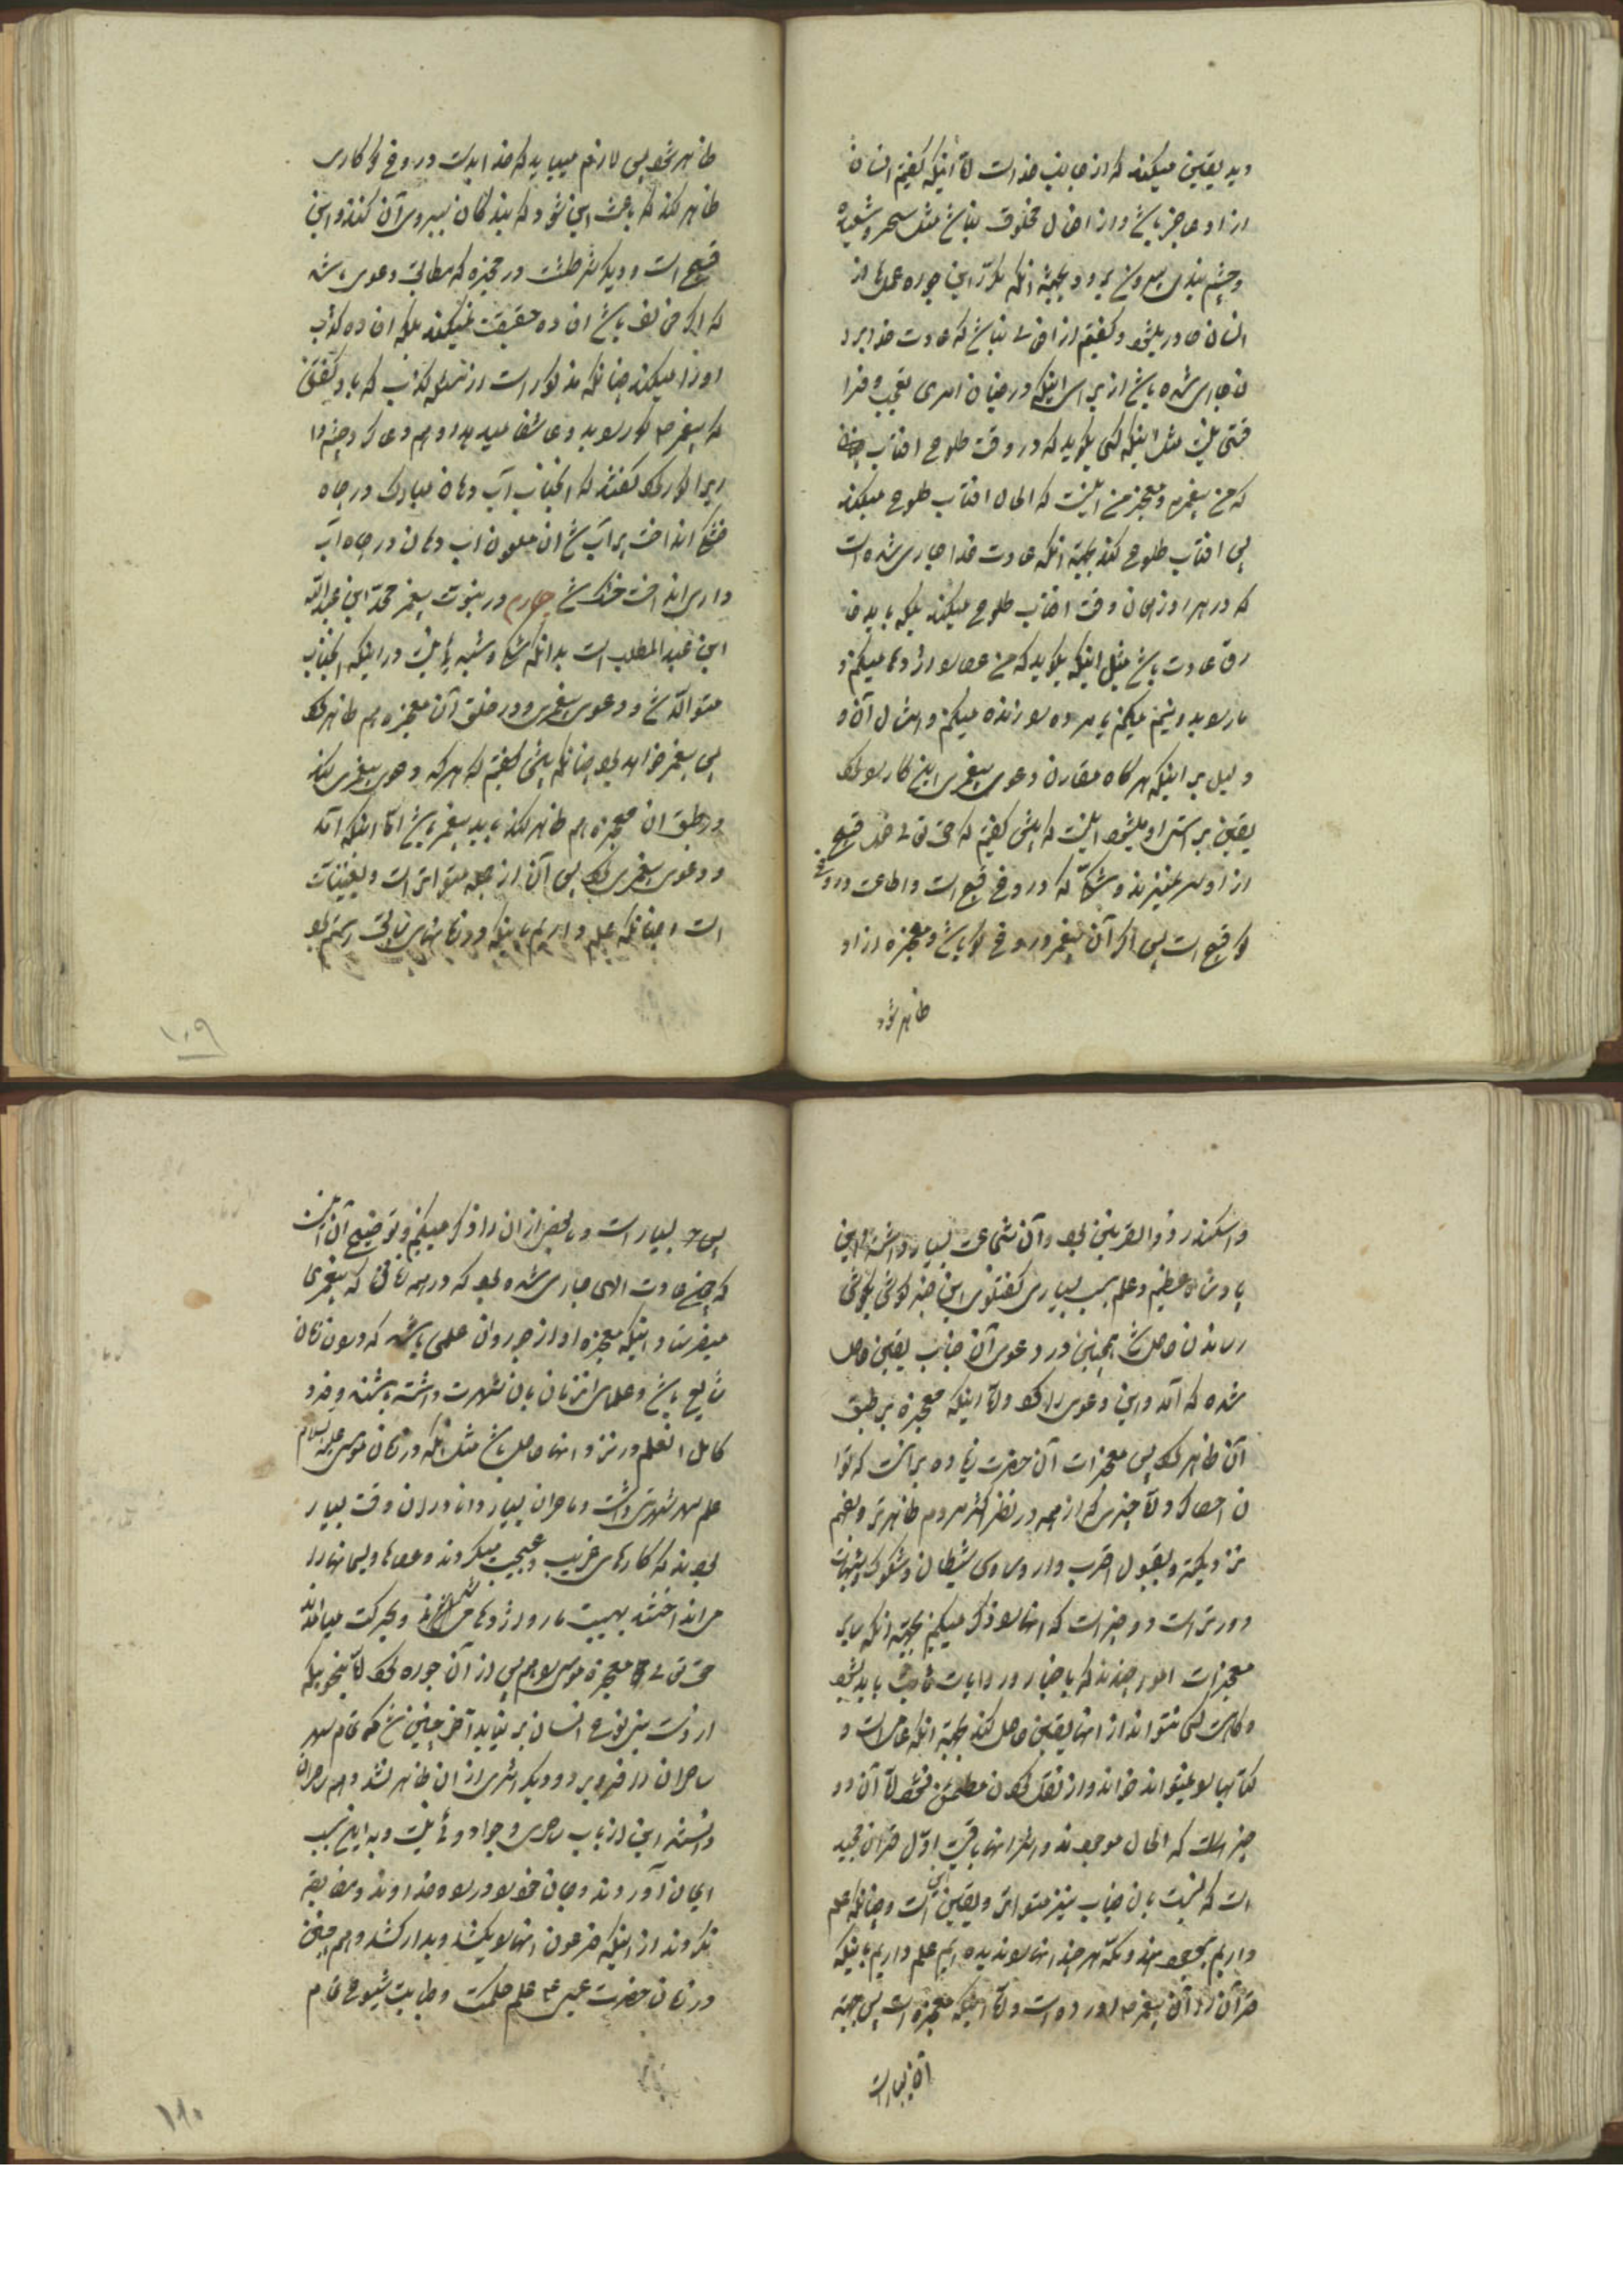 دید یقین میکند که از جانب خداست اما اینکه گفتیم انسان
از او عاجز باشد و از افعال مخلوق نباشد مثل سحر و شعبده
و چشم بندی بیرون برود بجهة انکه مکرر این جوره عملها از
انسان صادر میشود و گفتیم از افعالی نباشد که عادت خدا بر
ان جاری شده باشد از برای اینکه در چنان امری تعجب و خرا
قتی نیست مثل اینکه کسی بگوید که در وقت طلوع افتاب
که من پیغمبرم و معجز من اینست که الحال افتاب طلوع میکند
پس افتاب طلوع کند بجهة انکه عادت خدا جاری شده است
که در هر روز همان وقت افتاب طلوع میکند بلکه باید خا
رق عادت باشد مثل اینکه بگوید که من عصا را اژدها میکنم و
ماه را بدو نیم میکنم یا مرده را زنده میکنم و امثال آن و
دلیل بر اینکه هر گاه مقارن دعوی پیغمبری این کار را کرد
یقین بر راستی او میشود اینست که پیش گفتیم که حق تعالی فعل قبیح
از او سر نمیزند و شک که دروغ قبیح است و اطاعت دروغ
گو قبیح است پس اگر آن پیغمبر دروغ گو باشد و معجزه از او
ظاهر شود
ظاهر شود پس لازم میاید که خدا بدست دروغ گو کاری
ظاهر کند که باعث این شود که بندگان پیروی آن کنند و این
قبیح است و دیگر شرطست در معجزه که مطابق دعوی باشد
که اگر مخالف باشد افاده حقیقت نمیکند بلکه افاده کذب
او را میکند چنانکه مذکور است از مسیلمه کذاب که باو گفتند
که پیغمبر ص کور را دید و عا شفا میدید او هم دعا کرد چشم وا
را کور کرد گفتند که انجناب آب دهان مبارک در چاه
خشک انداخت پر آب شد ان ملعون آب دهان در چاه آب
داری انداخت خشک شد چهارم در نبوت پیغمبر محمد ابن عبدالله
ابن عبدالمطلب است بدانکه شک و شبهه نیست در اینکه انجناب
متولد شد و دعوی پیغمبری و در خلق آن معجزه هم ظاهر کرد
پس پیغمبر خواهد بود چنانکه پیش گفتیم که هر که دعوی پیغمبری کند
و بر طبق ان معجزه هم ظاهر کند باید پیغمبر باشد اما اینکه آمد
و دعوی پیغمبری کرد پس آن از جمله متواترات و یقینیات
است چنانکه علم داریم باینکه در زمانهای سابق رستم بود
۱۰۹
و اسکندر ذوالقرنین بود و آن شجاعت بسیار داشت و این
پادشاه عظیم و علم بسبب بسیاری گفتگوی این خبر گوش بگوش
رساندن حاصل شد همچنین در دعوی آن جناب یقین حاصل
شده که آمد و این دعوی را کرد و اما اینکه معجزه بر طبق
آن ظاهر کرد پس معجزات آن حضرت زیاده بر انست که توا
ن احصا کرد و اما چیزی که از همه در نظر اکثر مردم ظاهرتر و بفهم
نزدیکتر و بقبول اقرب و از وساوس شیطان و شکوک و شبهات
دورتر است دو چیز است که انها را ذکر میکنیم بجهة انکه سایر
معجزات امور چندند که باخبار و روایات ثابت باید بشود
و گاهست کسی نتواند از انها یقین حاصل کند بجهة انکه عامی است و
کتابها را نمیتواند خواند و از نقل کردن مطمئن نشود اما آن دو
چیز است که الحال موجودند و اثر انها باقیست اول قران مجید
است که نسبت بان جناب نیز متواتر و یقینی است و چنانکه علم
داریم بوجود هند و مکه هر چند انها را ندیده ایم علم داریم باینکه
قرآن را آن پیغمبر ص اورده است و اما اینکه معجزه است پس جهة
آن بسیار است
پس بسیار است و ما بعضی از ان را ذکر میکنیم و توضیح آن اینست
که چنین عادت الهی جاری شده بود که در هر زمانی که پیغمبری
میفرستاد اینکه معجزه او از جوره ان علمی باشد که در ان زمان
شایع باشد و علمای انزمان بان شهرت داشته باشند و خود
کامل انعلم در نزد انها حاصل باشد مثل انکه در زمان موسی علیه السلام
علم سحر شهرت داشت و ساحران بسیار دانا در ان وقت بسیار
بودند که کارهای غریب و عجیب میکردند و عصاها و ریسمانها را
می انداختند بهیئت مار و اژدها و بحرکت میامدند
حق تعالی معجزه موسی را هم پس از آن جوره کرد اما بنحویکه
از دست بنی نوع انسان بر نیاید آخر چنین شد که تمام سحر
ساحران را فرو برد و دیگر اثری از ان ظاهر نشد و هم ساحران
دانستند این از باب ساحری و جادو نیست و به این سبب
ایمان آوردند و جان خود را در راه خدا دادند و مضایقه
نکردند از اینکه فرعون انها را بکشد و بدار کشد و هم چنین
در زمان حضرت عیسی ع علم حکمت و طبابت شیوع تمام
۱۱۰